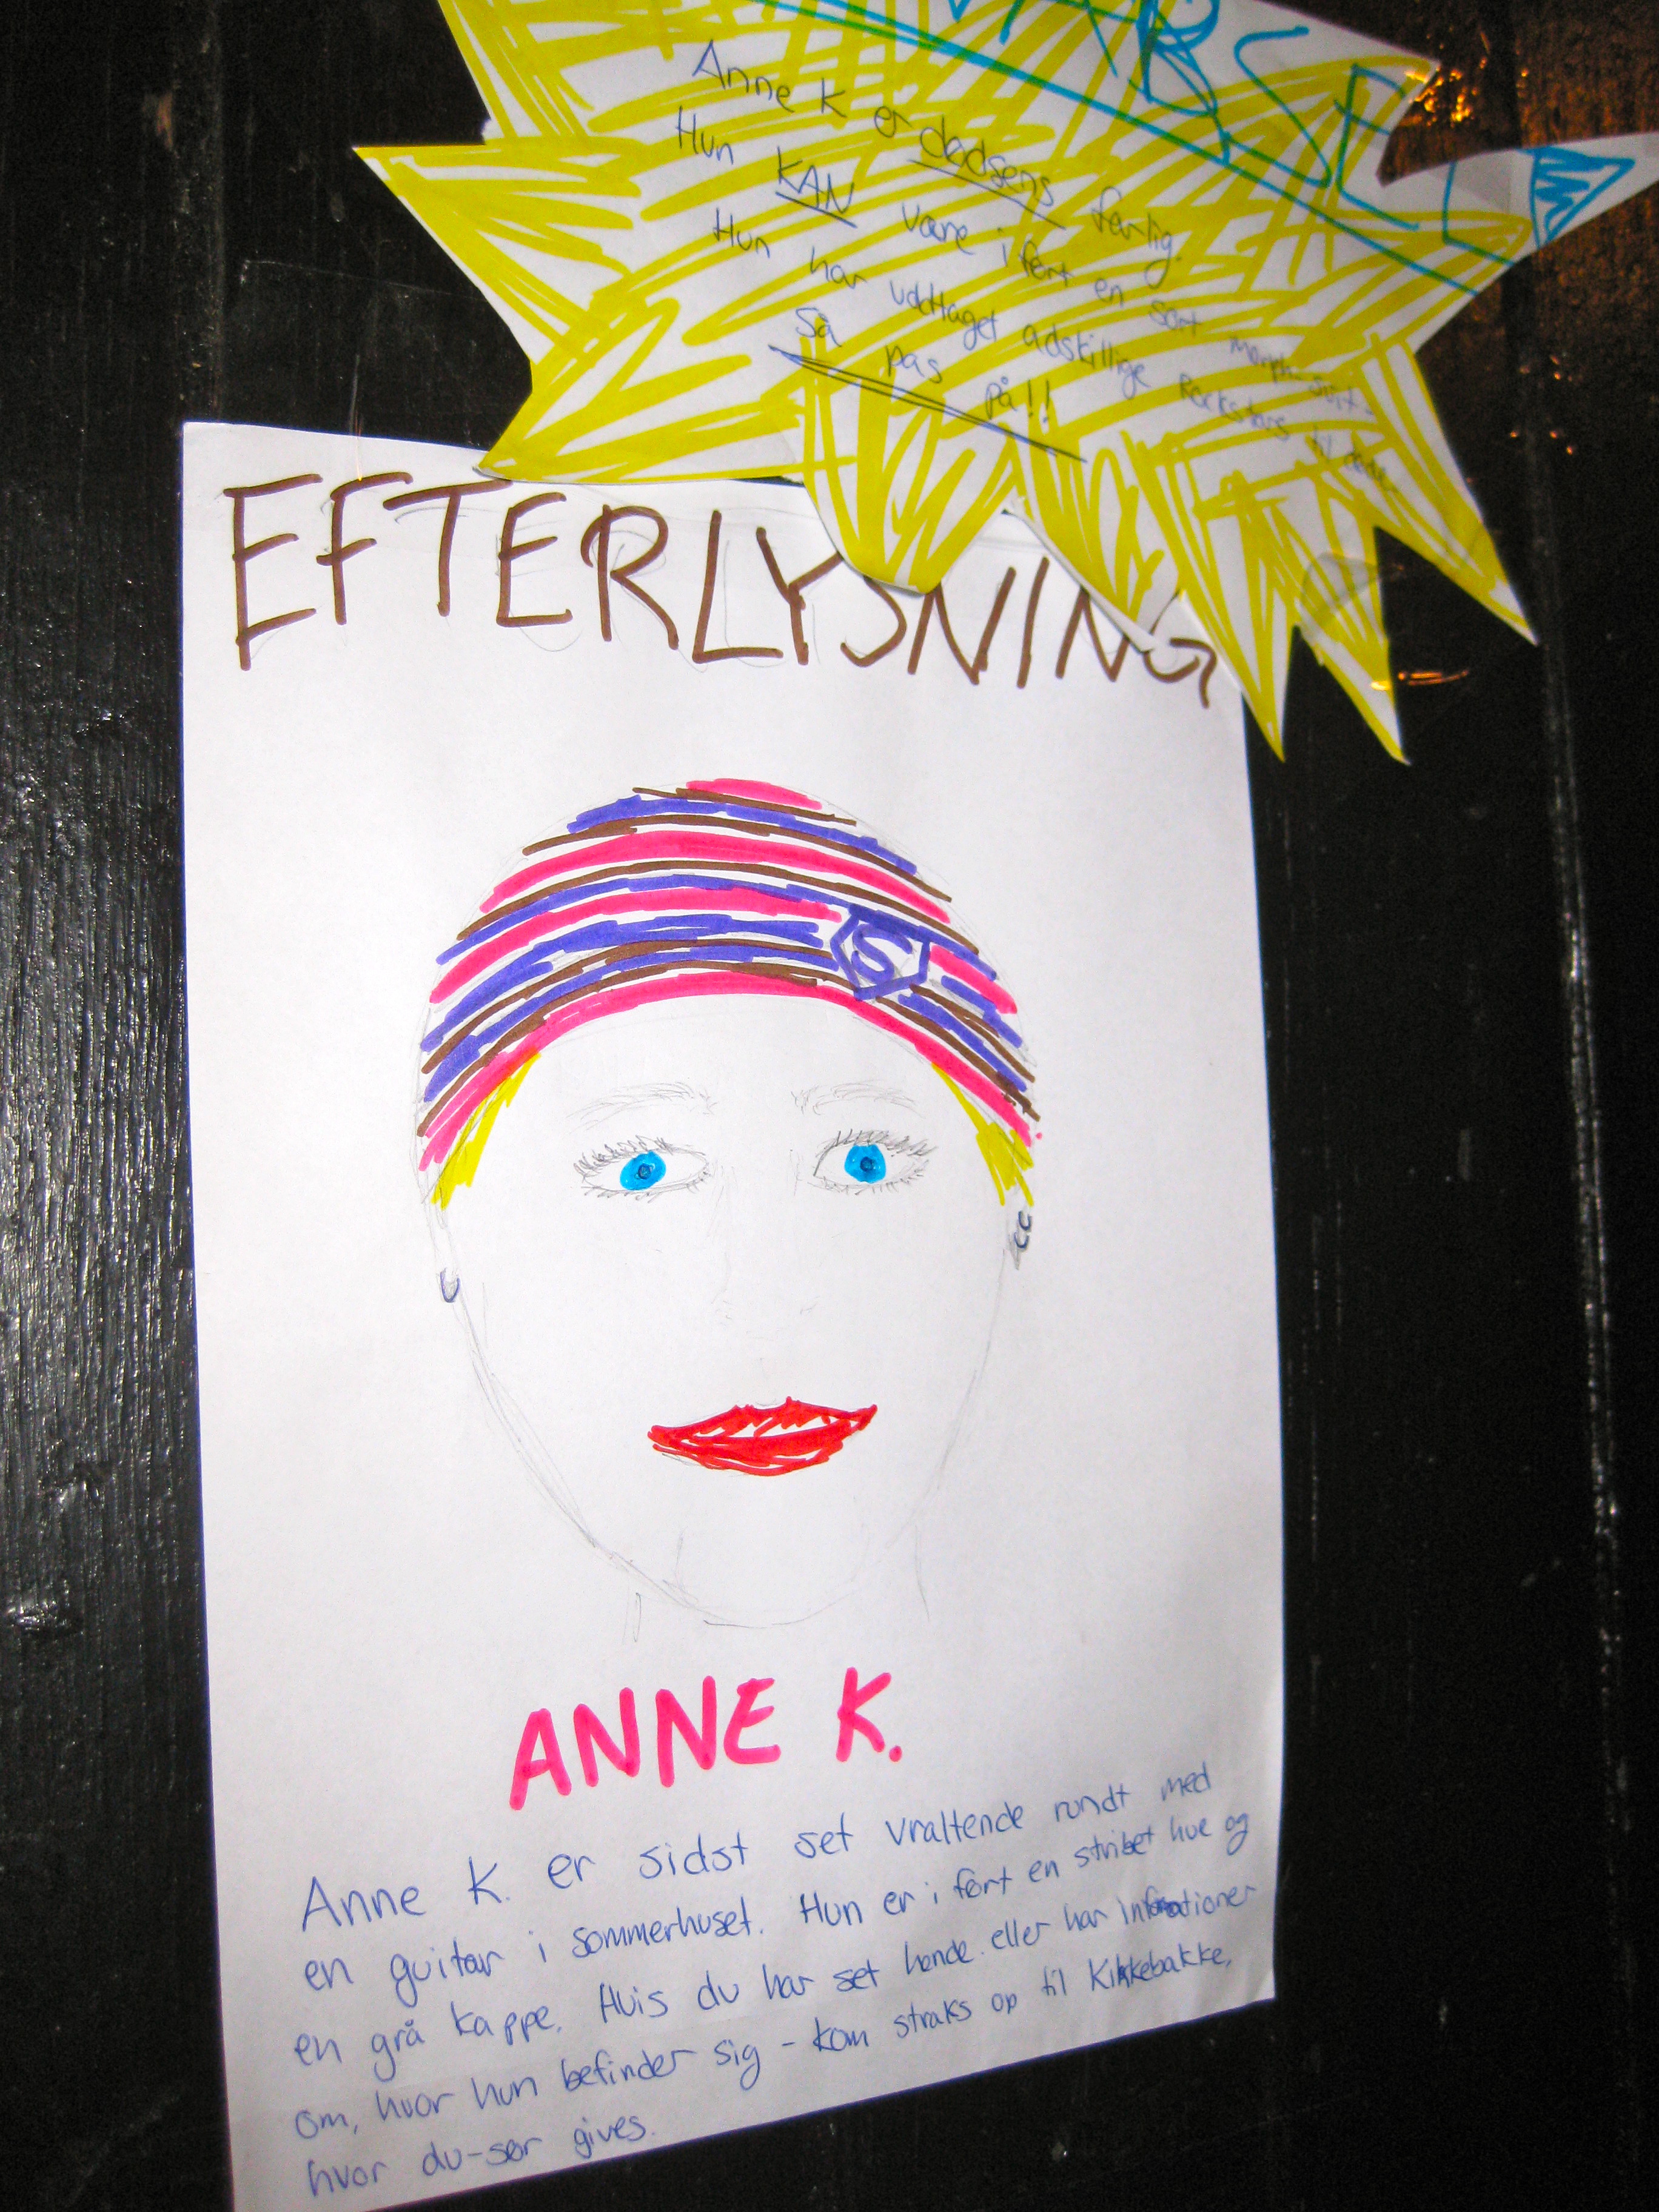 Anne K er dødsens farlig.
Hun KAN være iført en sort Morph-suit-
Hun har uddtaget adskillige Rockstars til døde.
Så pas på!!
EFTERLYSNING
S
ANNE K.
Anne K. er sidst set vraltende rundt med
en guitar i sommerhuset. Hun er i ført en stribet hue og
en grå kappe. Hvis du har set hende eller har informationer
om, hvor hun befinder sig - kom straks op til Kikkebakke,
hvor du-sør gives.